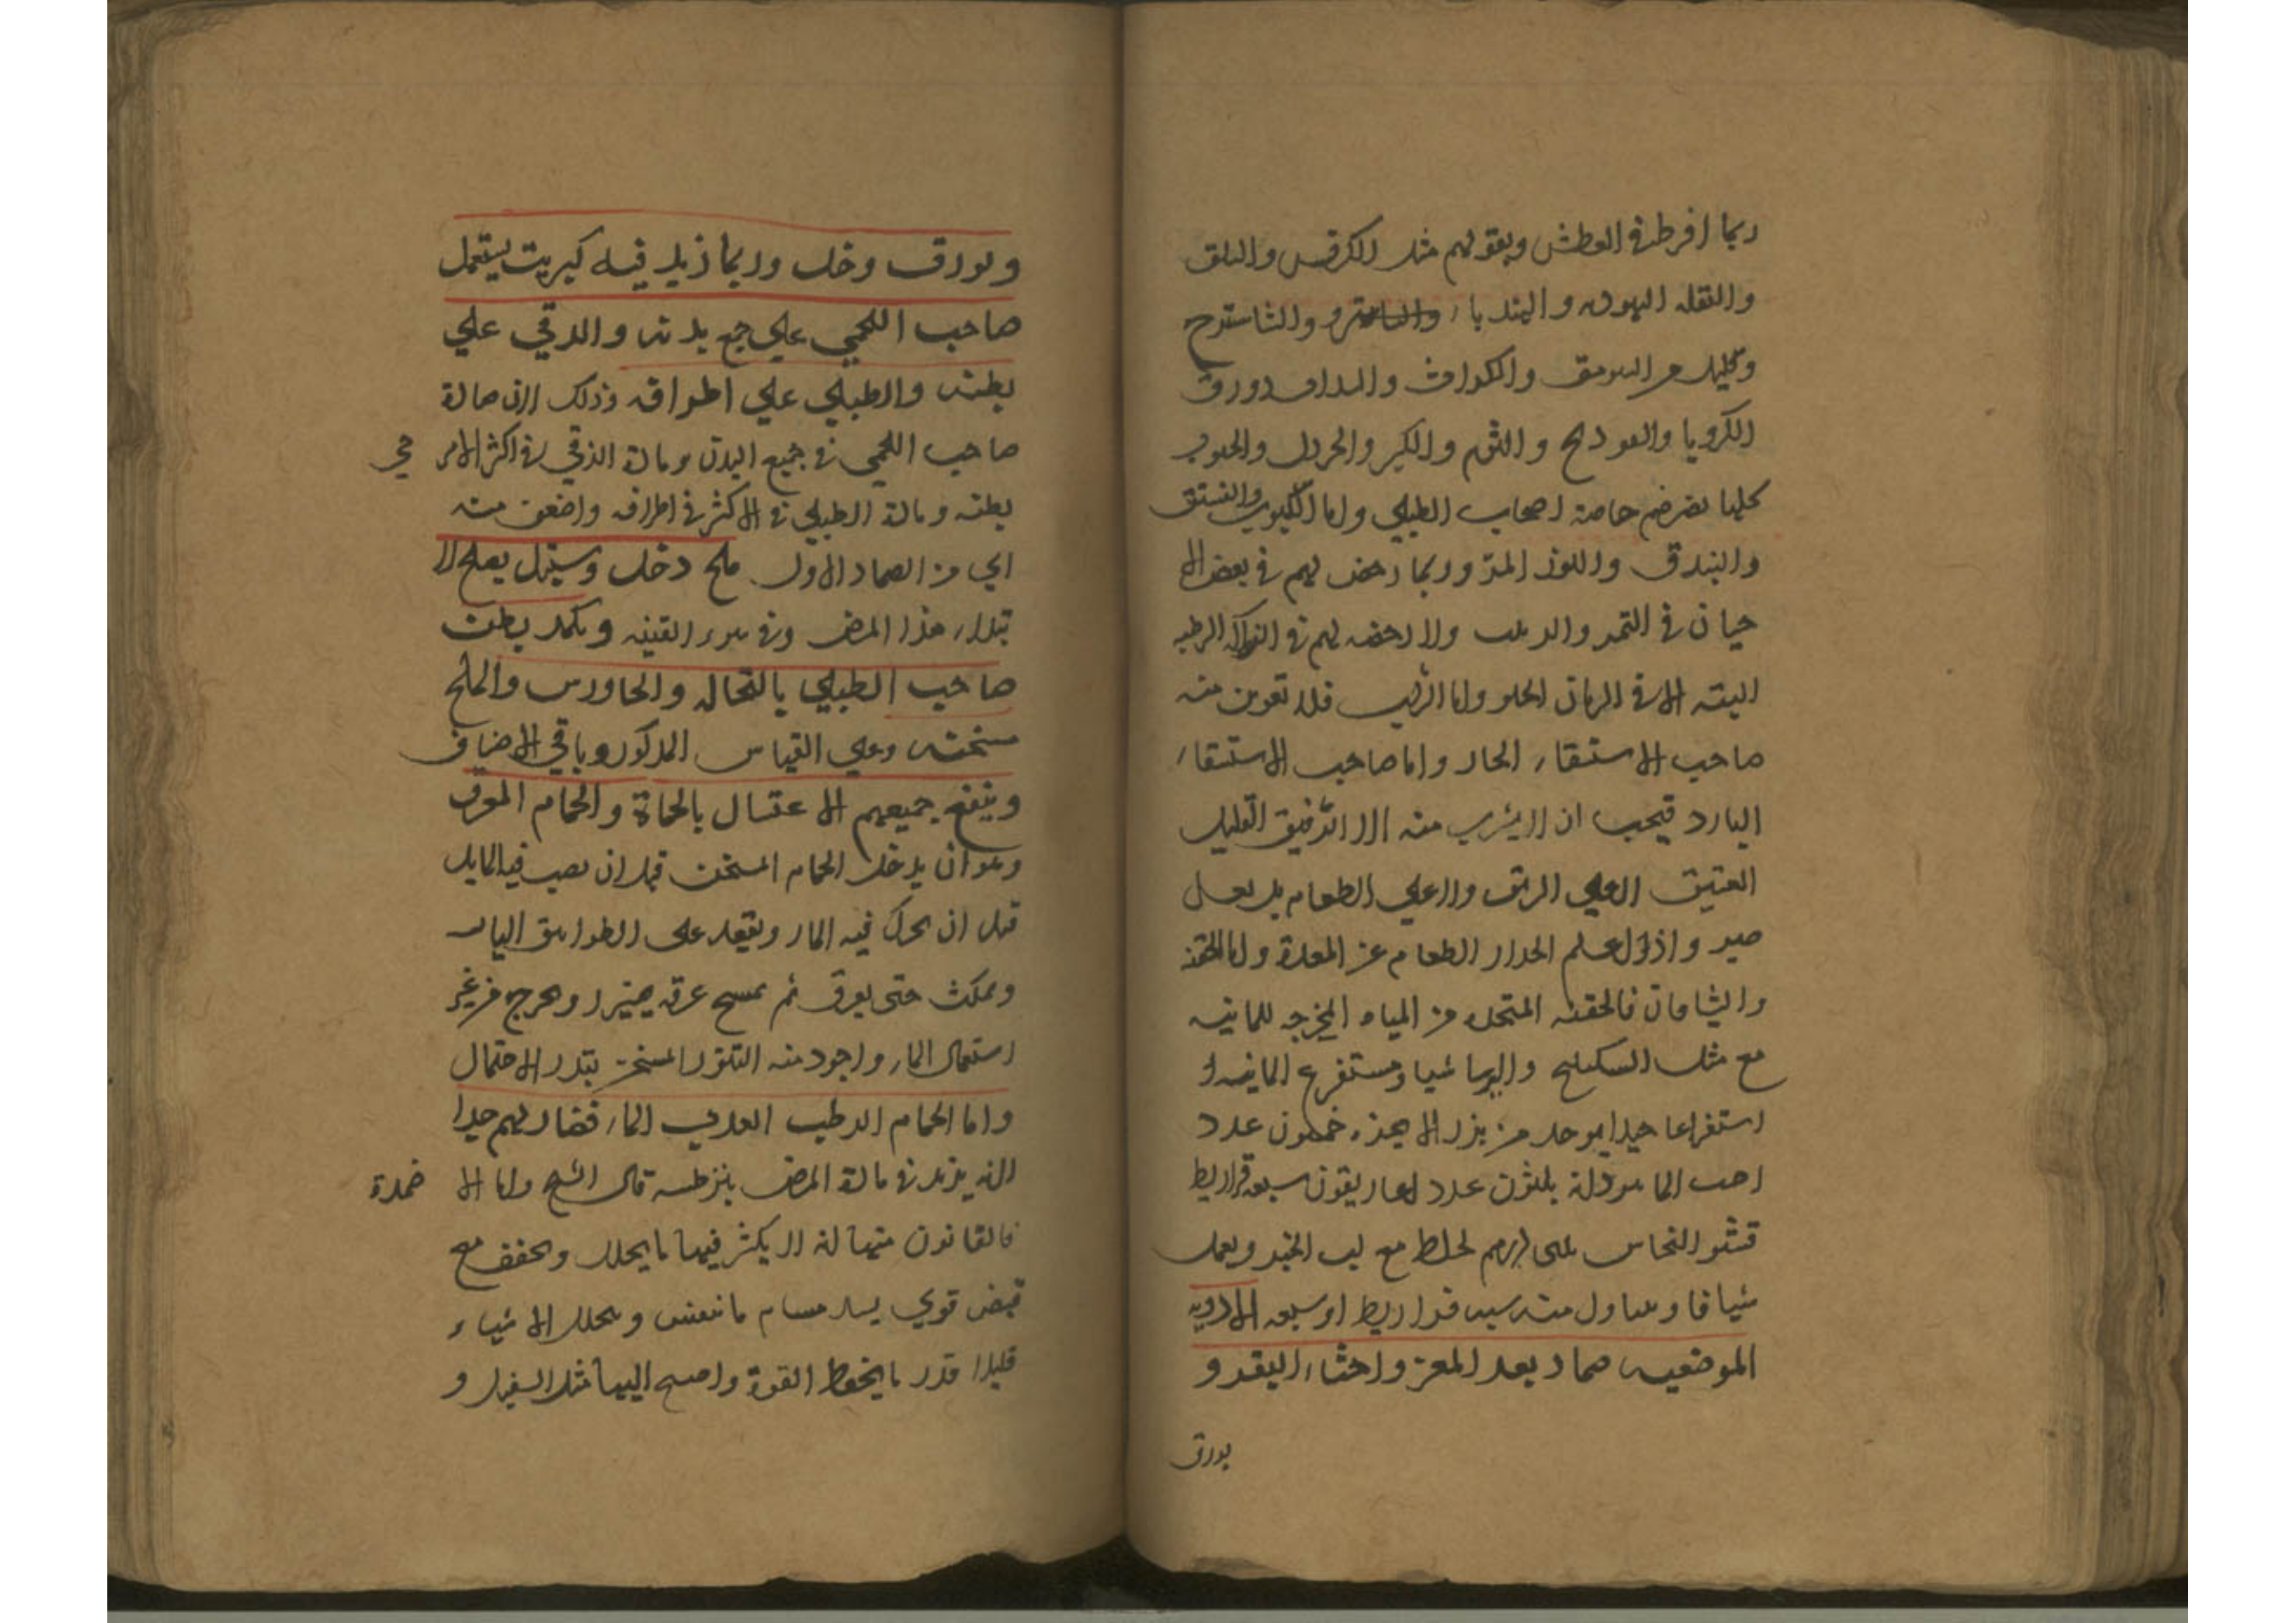 ربما افرط في العطش وبقولهم مثل الكرفس والسلق
والبقله اليهوديه والهندباء والشاهترج
وقليل من السرمق والكراث والسداب وورق
الكرويا والفودنج والثوم والكبر والخردل والحبوب
كلها تضرهم خاصة اصحاب الطبلي واما اللبوب والفستق
والبندق واللوز المر وربما رخص لهم في بعض الا
حيان في التمر والزبيب ولا رخصه لهم في الفواكه الرطبه
البته الا في الرمان الحلو واما الشراب فلا تقربن منه
صاحب الاستسقاء الحار واما صاحب الاستسقاء
البارد فيجب ان لا يشرب منه الا الرقيق القليل
العتيق لا علي الريق ولا علي الطعام بل بعد
صبر واذا علم انحدار الطعام عن المعدة واما الحقنه
والشيافات فالحقنه المتخذه من المياه المخرجه للمائيه
مع مثل السكبينج والايرسا شيا ومستفرغ المائيه
استفراغا جيدا يوخذ من بزر الانجره خمسون عدد
حب الماموذانه ثلثون عدد غاريقون سبعه قراريط
قشر النحاس درهم يخلط مع لب الخبز ويعمل
شيافا ويتناول منه سته قراريط او سبعه الادويه
الموضعيه ضماد بعر المعز واخثاء البقر و
بورق
وبورق وخل وربما زيد فيه كبريت يستعمل
صاحب اللحمي علي جمع بدنه والدقي علي
بطنه والطبلي علي اطرافه وذلك لان مادة
صاحب اللحمي في جميع البدن ومادة الزقي في اكثر الامر في
بطنه ومادة الطبلي في الاكثر في اطرافه واضعف منه
اي من الضماد الاول ملح وخل وسيتل يصلح لا
بتداء هذا المرض وفي سوء القنيه وتكمد بطن
صاحب الطبلي بالنخاله والجاورس والملح
مسخنه وعلي القياس المذكور وباقي الاضاف
وينفع جميعهم الاغتسال بالحماة والحمام المعرق
وهو ان يدخل الحمام المسخن قبل ان يصب فيه الماء بل
قبل ان يحرك فيه الماء ويقعد علي الطوابيق اليابسه
ويمكث حتي يعرق ثم يمسح عرقه بميزر ويخرج من غير
استعمال الماء واجود منه التنور المسخن بقدر الاحتمال
واما الحمام الرطب العذب الماء فضار لهم جدا
لانه يزيد في مادة المرض بترطيبه قال الشيخ واما الا ضمدة
فالقانون فيها انه لا يكثر فيها ما يحلل ويجفف مع
قبض قوي يسد مسام ما يتنفس ويحلل الاشياء
قليلا قدر ما يحفظ القوة واصبح اليها مثل السنبل و